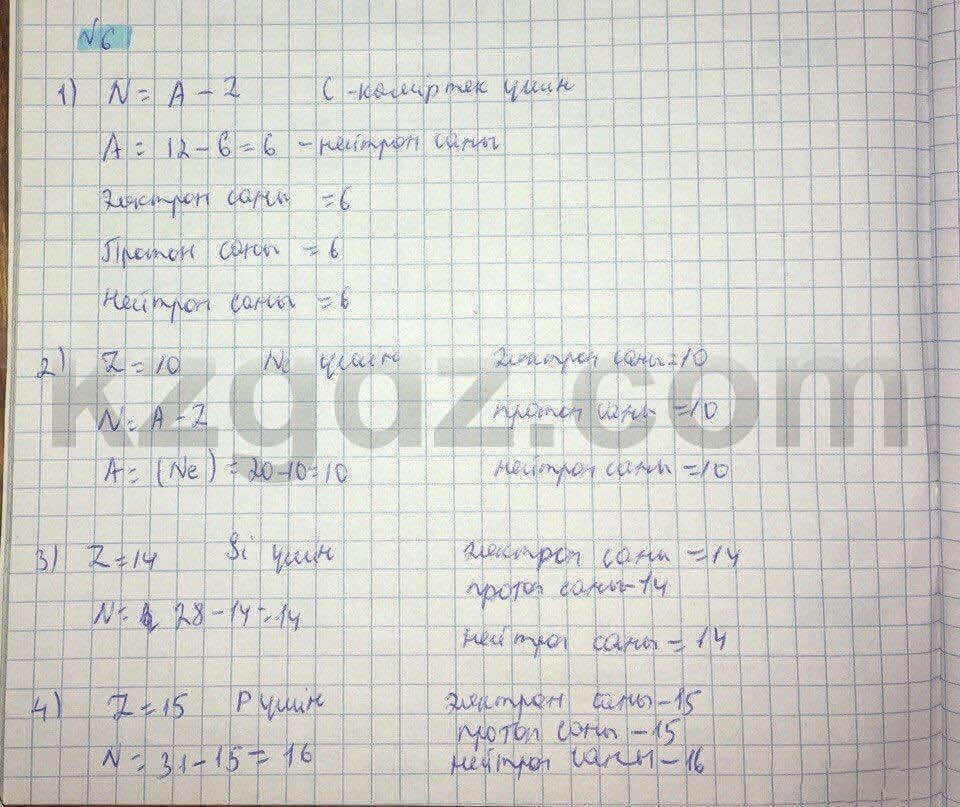 №6
1) N = A - Z C - көміртек үшін
A = 12 - 6 = 6 - нейтрон саны
Электрон саны = 6
Протон саны = 6
Нейтрон саны = 6
2) Z = 10 Ne үшін электрон саны = 10
N = A - Z протон саны = 10
A = (Ne) = 20 - 10 = 10 нейтрон саны = 10
kzgdz.com
3) Z = 14 Si үшін электрон саны = 14
протон саны - 14
N = 28 - 14 = 14
нейтрон саны = 14
4) Z = 15 P үшін электрон саны - 15
протон саны - 15
N = 31 - 15 = 16 нейтрон саны - 16